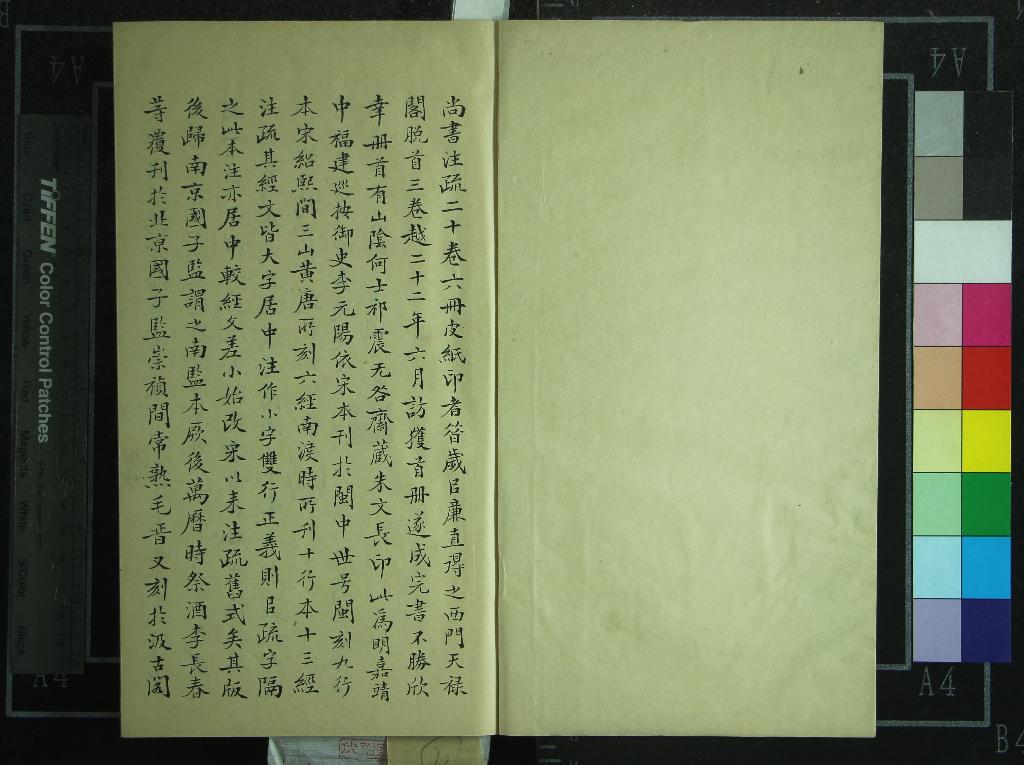 尚書注疏二十卷六冊皮紙印者昝歲㠯廉直得之西門天祿
閣脫首三卷越二十二年六月訪獲首冊遂成完書不勝欣
幸冊首有山陰何士祁震无咎齋藏朱文長印此爲明嘉靖
中福建巡按御史李元陽依宋本刊於閩中世号閩刻九行
本宋紹熙間三山黃唐所刻六經南渡時所刊十行本十三經
注疏其經文皆大字居中注作小字雙行正義則㠯疏字隔
之此本注亦居中較經文差小始改宋以來注疏舊式矣其版
後歸南京國子監謂之南監本厥後萬曆時祭酒李長春
等覆刊於北京國子監崇禎間常熟毛晋又刻於汲古閣
A4
A4
A4
A4
TIFFEN Color Control Patches
Blue
Cyan
Green
Yellow
Red
Magenta
White
3/Color
Black